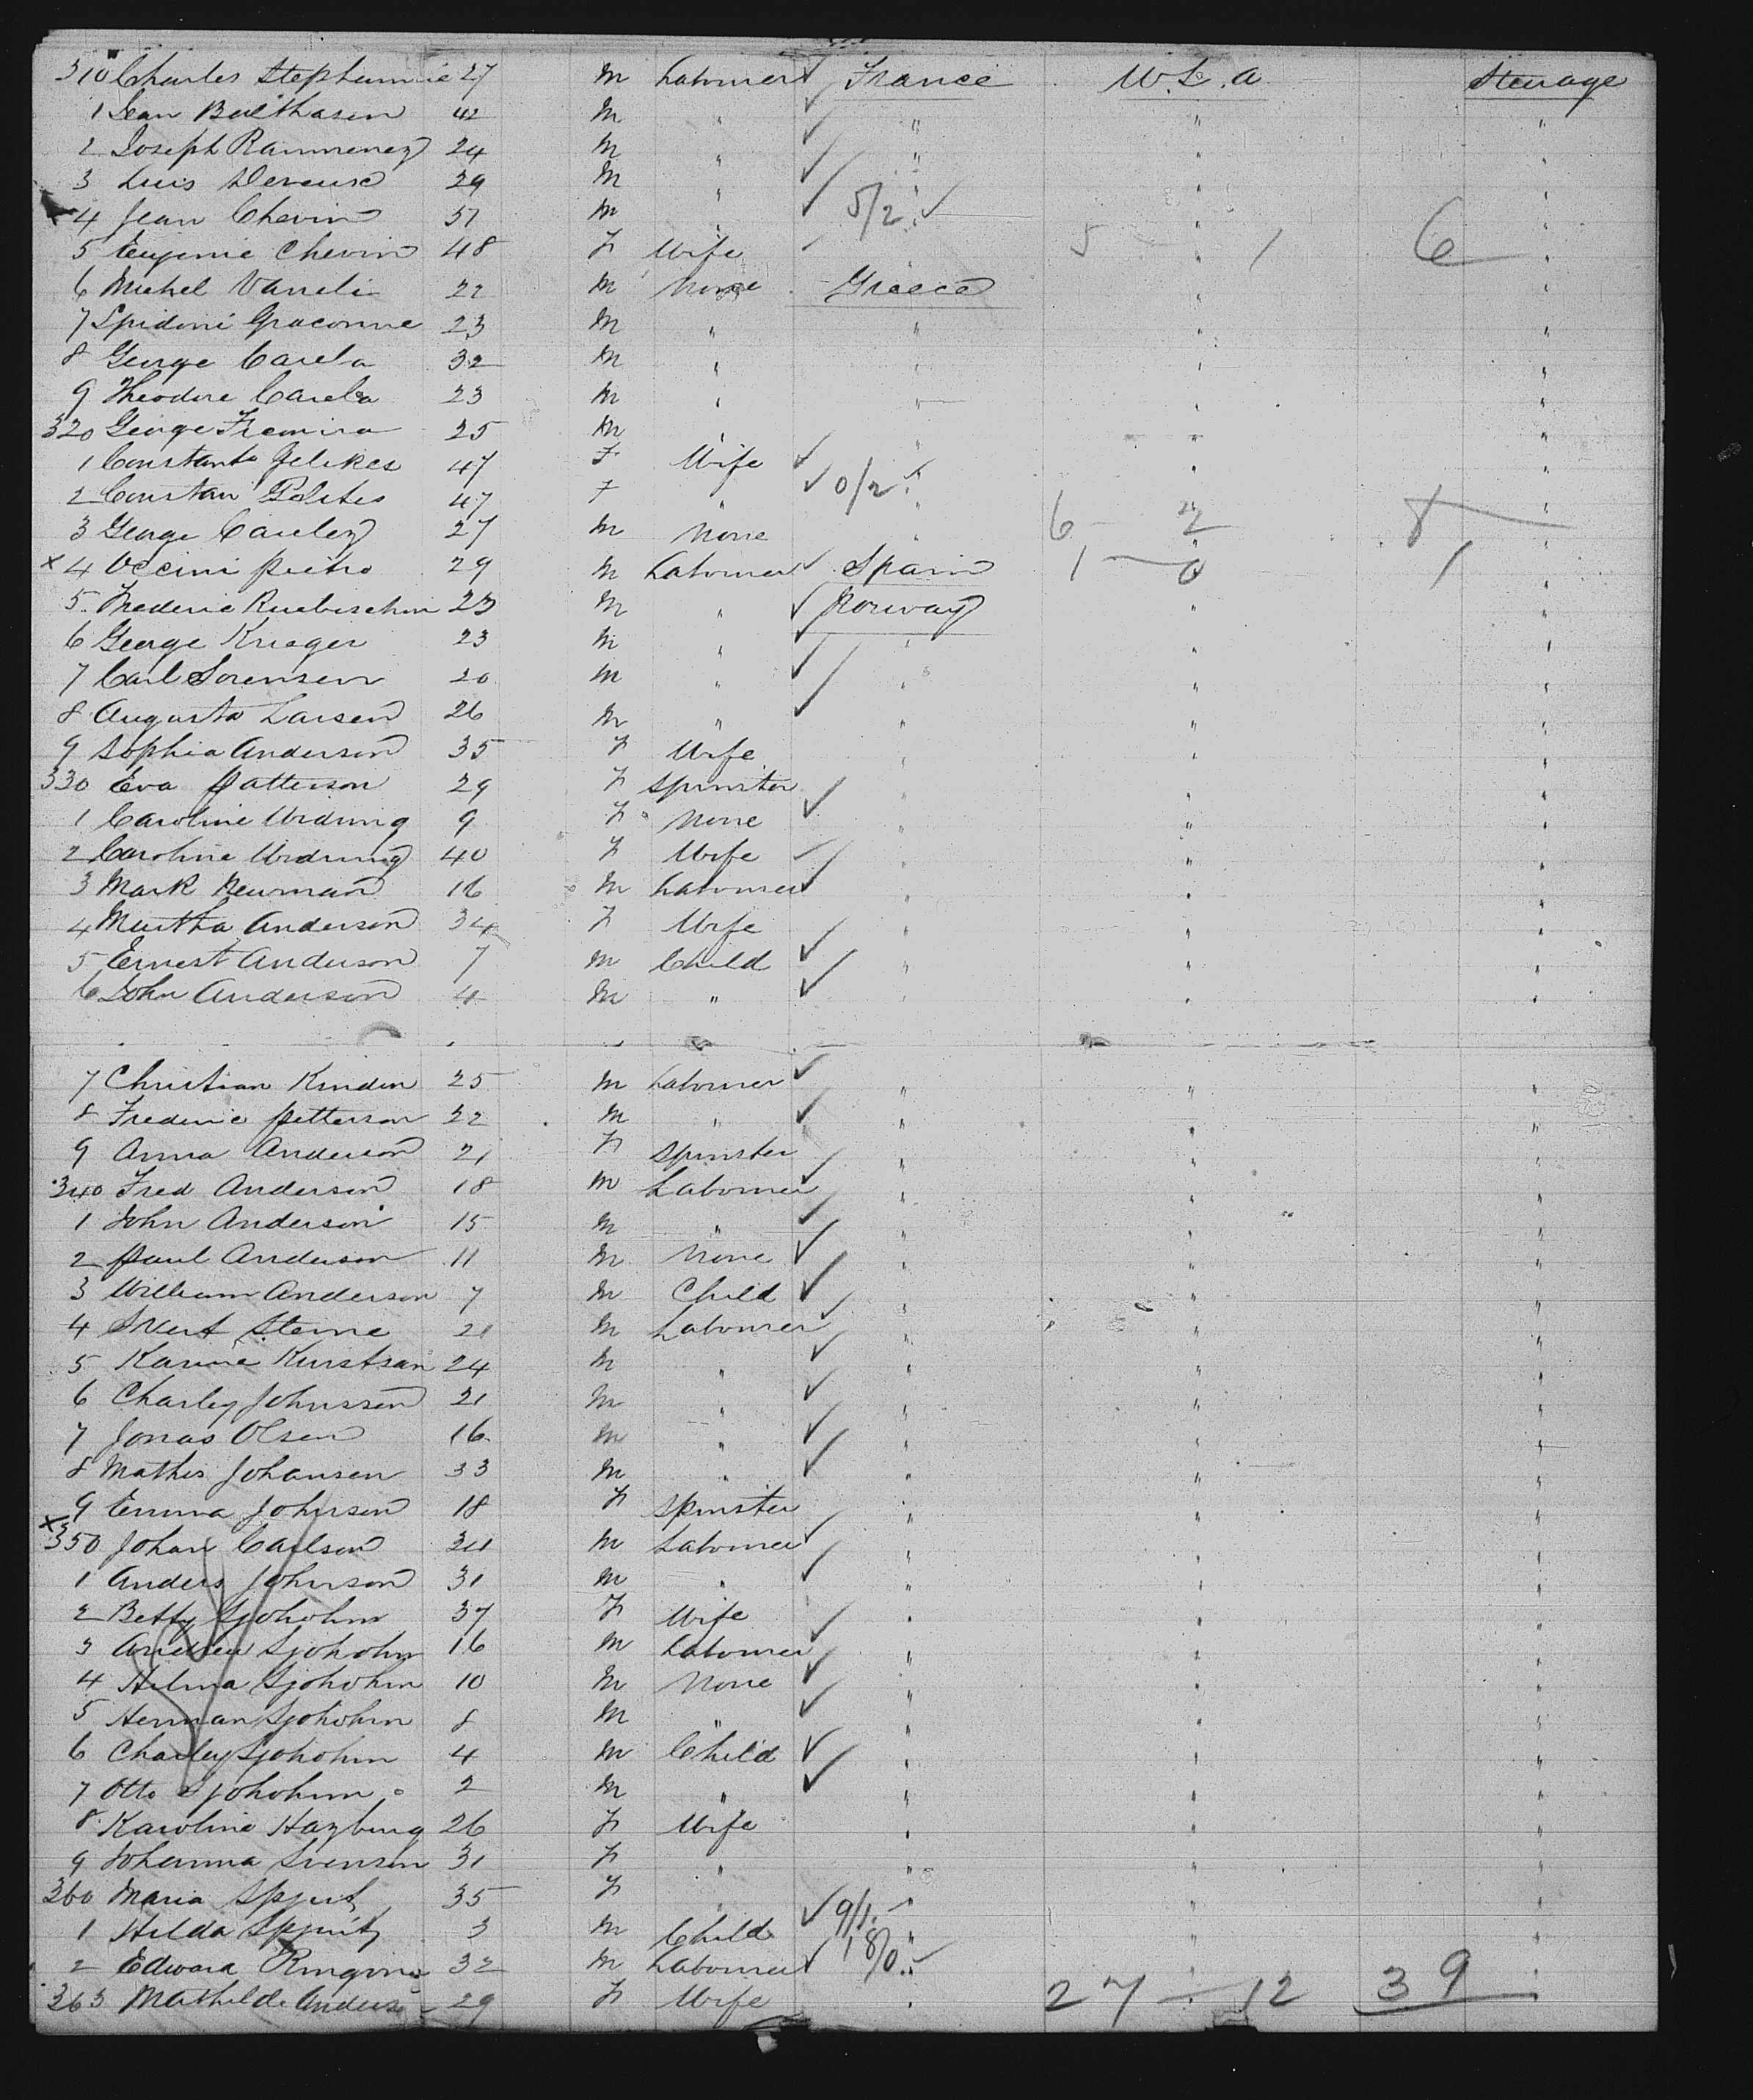 310 Charles Stephannie 27 M Labourer ✓ France U.S.A Steerage
1 Jean Balthasen 42 M " ✓ " " "
2 Joseph 24 M " ✓ " " "
3 Luis 29 M " ✓ " " "
4 Jean Chevin 57 M " ✓ 5/2 ✓ " "
5 Eugenie Chevin 48 F Wife ✓ " 5 " 1 6 "
6 Michel 22 M None Greece " "
7 Spidoni 23 M " " " "
8 George Carela 32 M " " " "
9 Theodore Carela 23 M " " " "
320 George 25 M " " " "
1 Constanta 47 F Wife ✓ " " "
2 Constan 47 F " ✓ 0/2 ✓ " "
3 George 27 M None " 6 2 8 "
x 4 Occini Pietro 29 M Labourer ✓ Spain 1 0 1 "
5 Frederic 23 M " ✓ Norway " "
6 George Krieger 23 M " ✓ " " "
7 Carl Sorensen 20 M " ✓ " " "
8 Augusta Larsen 26 M " ✓ " " "
9 Sophia Anderson 35 F Wife " " "
330 Eva Patterson 29 F Spinster " " "
1 Caroline 9 F None ✓ " " "
2 Caroline 40 F Wife ✓ " " "
3 Mark Newman 16 M Labourer ✓ " " "
4 Martha Anderson 34 F Wife " " "
5 Ernest Anderson 7 M Child ✓ " " "
6 John Anderson 4 M " ✓ " " "
7 Christian Kinden 25 M Labourer ✓ " " "
8 Frederic Petterson 22 M " ✓ " " "
9 Anna Anderson 21 F Spinster " " "
340 Fred Anderson 18 M Labourer ✓ " " "
1 John Anderson 15 M " ✓ " " "
2 Paul Anderson 11 M None ✓ " " "
3 William Anderson 7 M Child ✓ " " "
4 Sterne 21 M Labourer ✓ " " "
5 Karine 24 M " ✓ " " "
6 Charley Johnssen 21 M " ✓ " " "
7 Jonas Olsen 16 M " ✓ " " "
8 Mathis Johansen 33 M " ✓ " " "
9 Emma Johnson 18 F Spinster " " "
x 350 Johan Carlson M Labourer ✓ " " "
1 Anders Johnson 31 M " ✓ " " "
2 Betty Sjohohm 37 F Wife " " "
3 Andrew Sjohohm 16 M Labourer ✓ " " "
4 Helma Sjohohm 10 M None ✓ " " "
5 Herman Sjohohm 8 M " ✓ " " "
6 Charley Sjohohm 4 M Child ✓ " " "
7 Otto Sjohohm 2 M " ✓ " " "
8 Karoline Hazburg 26 F Wife " " "
9 Johanna Svensen 31 F " " " "
360 Maria 35 F " " " "
1 Hilda 3 M Child ✓ 9/1 " " "
2 Edward 32 M Labourer ✓ 18/0 ✓ " "
363 Mathilde Anders 29 F Wife " 27 12 39 "